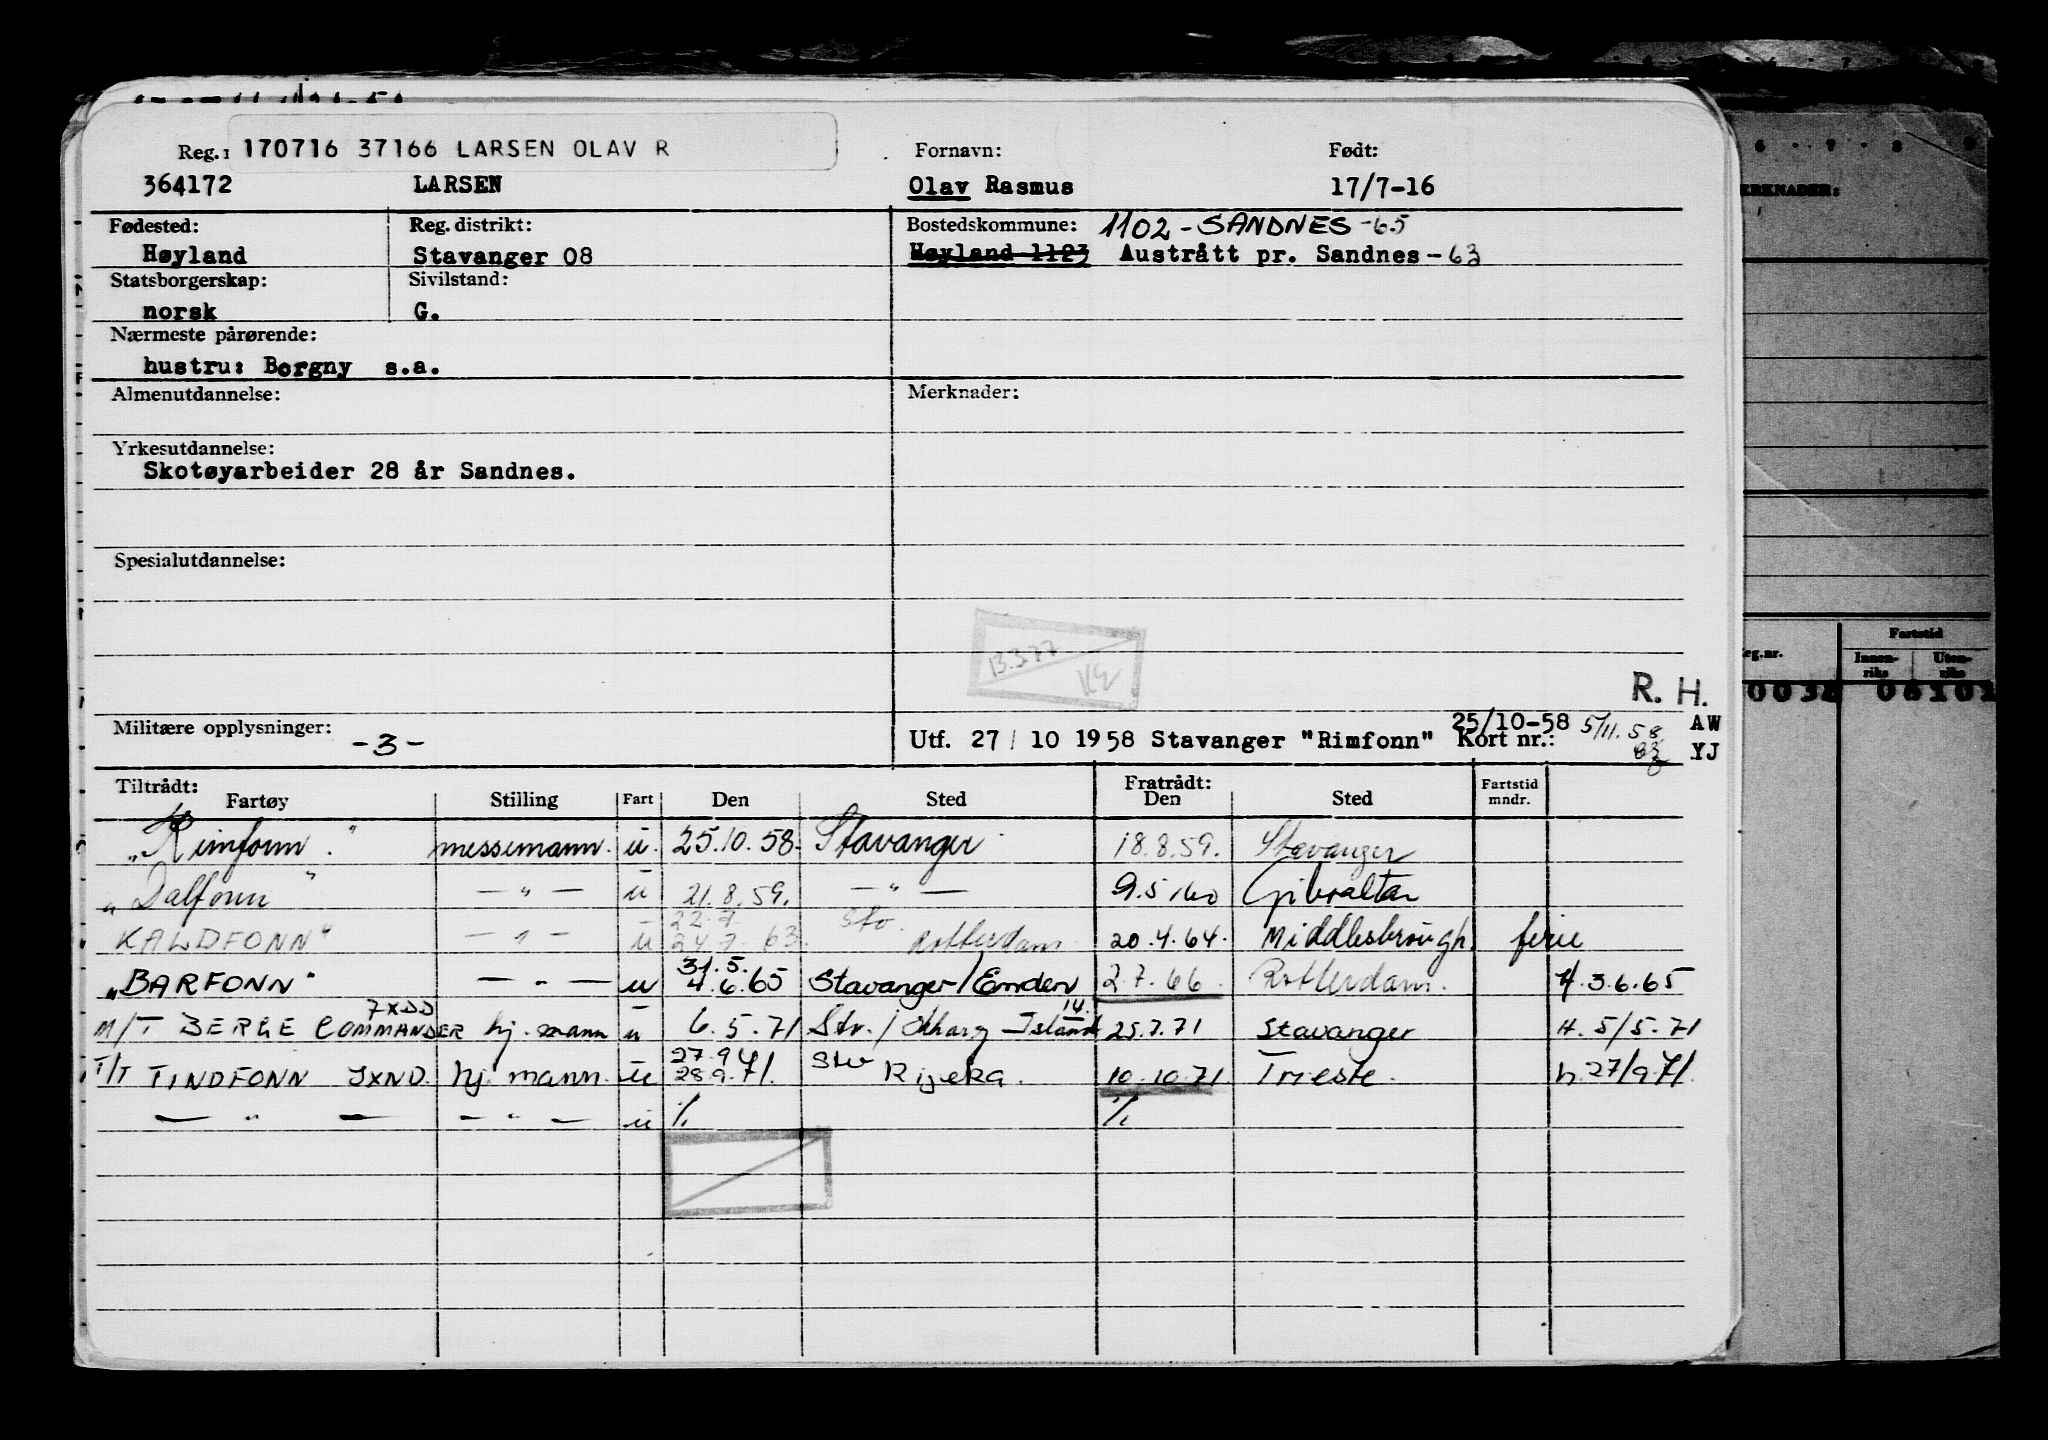 170716 37166 LARSEN OLAV R
Reg. Fornavn: Født:
364172 LARSEN Olav Rasmus 17/7-16
Fødested: Reg. distrikt: Bostedskommune: 1102 - SANDNES -65
Høyland Stavanger 08 Høyland 1123 Austrått pr. Sandnes - 63
Statsborgerskap: Sivilstand:
norsk G.
Nærmeste pårørende:
hustru: Borgny s.a.
Almenutdannelse: Merknader:
Yrkesutdannelse:
Skotøyarbeider 28 år Sandnes.
Spesialutdannelse:
B.377
R. H.
Militære opplysninger: -3-
25/10-58 5/11.58 AW
Utf. 27/10 1958 Stavanger "Rimfonn" Kort nr.: YJ
Tiltrådt: Fratrådt:
Fartøy Stilling Fart Den Sted Den Sted Fartstid mndr.
"Rimfonn" messemann. u. 25.10.58. Stavanger 18.8.59. Stavanger
"Dalfonn" — " — u 21.8.59. — " — 9.5.60 Gibraltar
22.7. Sto.
KALDFONN" — " — u 24.7.63. Rotterdam 20.4.64. Middlesbrough. ferie
31.5.
"BARFONN" — " — u 4.6.65 Stavanger/Emden 2.7.66. Rotterdam. H. 3.6.65
7XDD 14.
M/T BERGE COMMANDER hj. mann u 6.5.71 Stv./Kharg Island 25.7.71 Stavanger H. 5/5.71
27.9 Stv
T/T TINDFONN JXND. hj. mann. u 28.9.71. Rijeka. 10.10.71. Trieste. h. 27/9.71.
— " — — " — u % %
6 . 7 . 8 9
ERKNADER:
eg.nr. Fartstid
Innen-riks Uten-riks